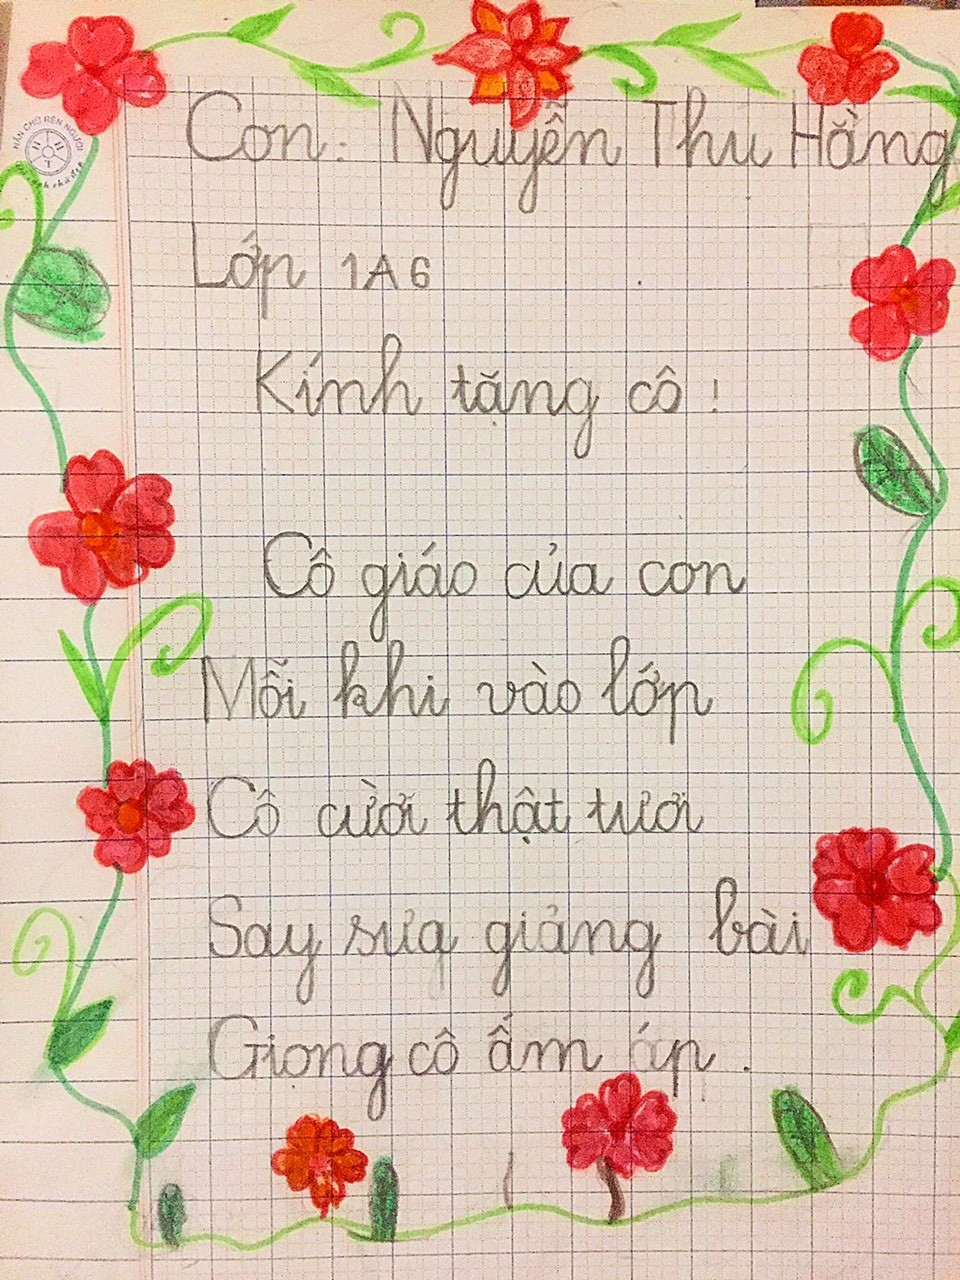 NẮN CHỮ RÈN NGƯỜI
Con: Nguyễn Thu Hằng
Lớp 1A6
Kính tặng cô !
Cô giáo của con
Mỗi khi vào lớp
Cô cười thật tươi
Say sưa giảng bài
Giọng cô ấm áp .